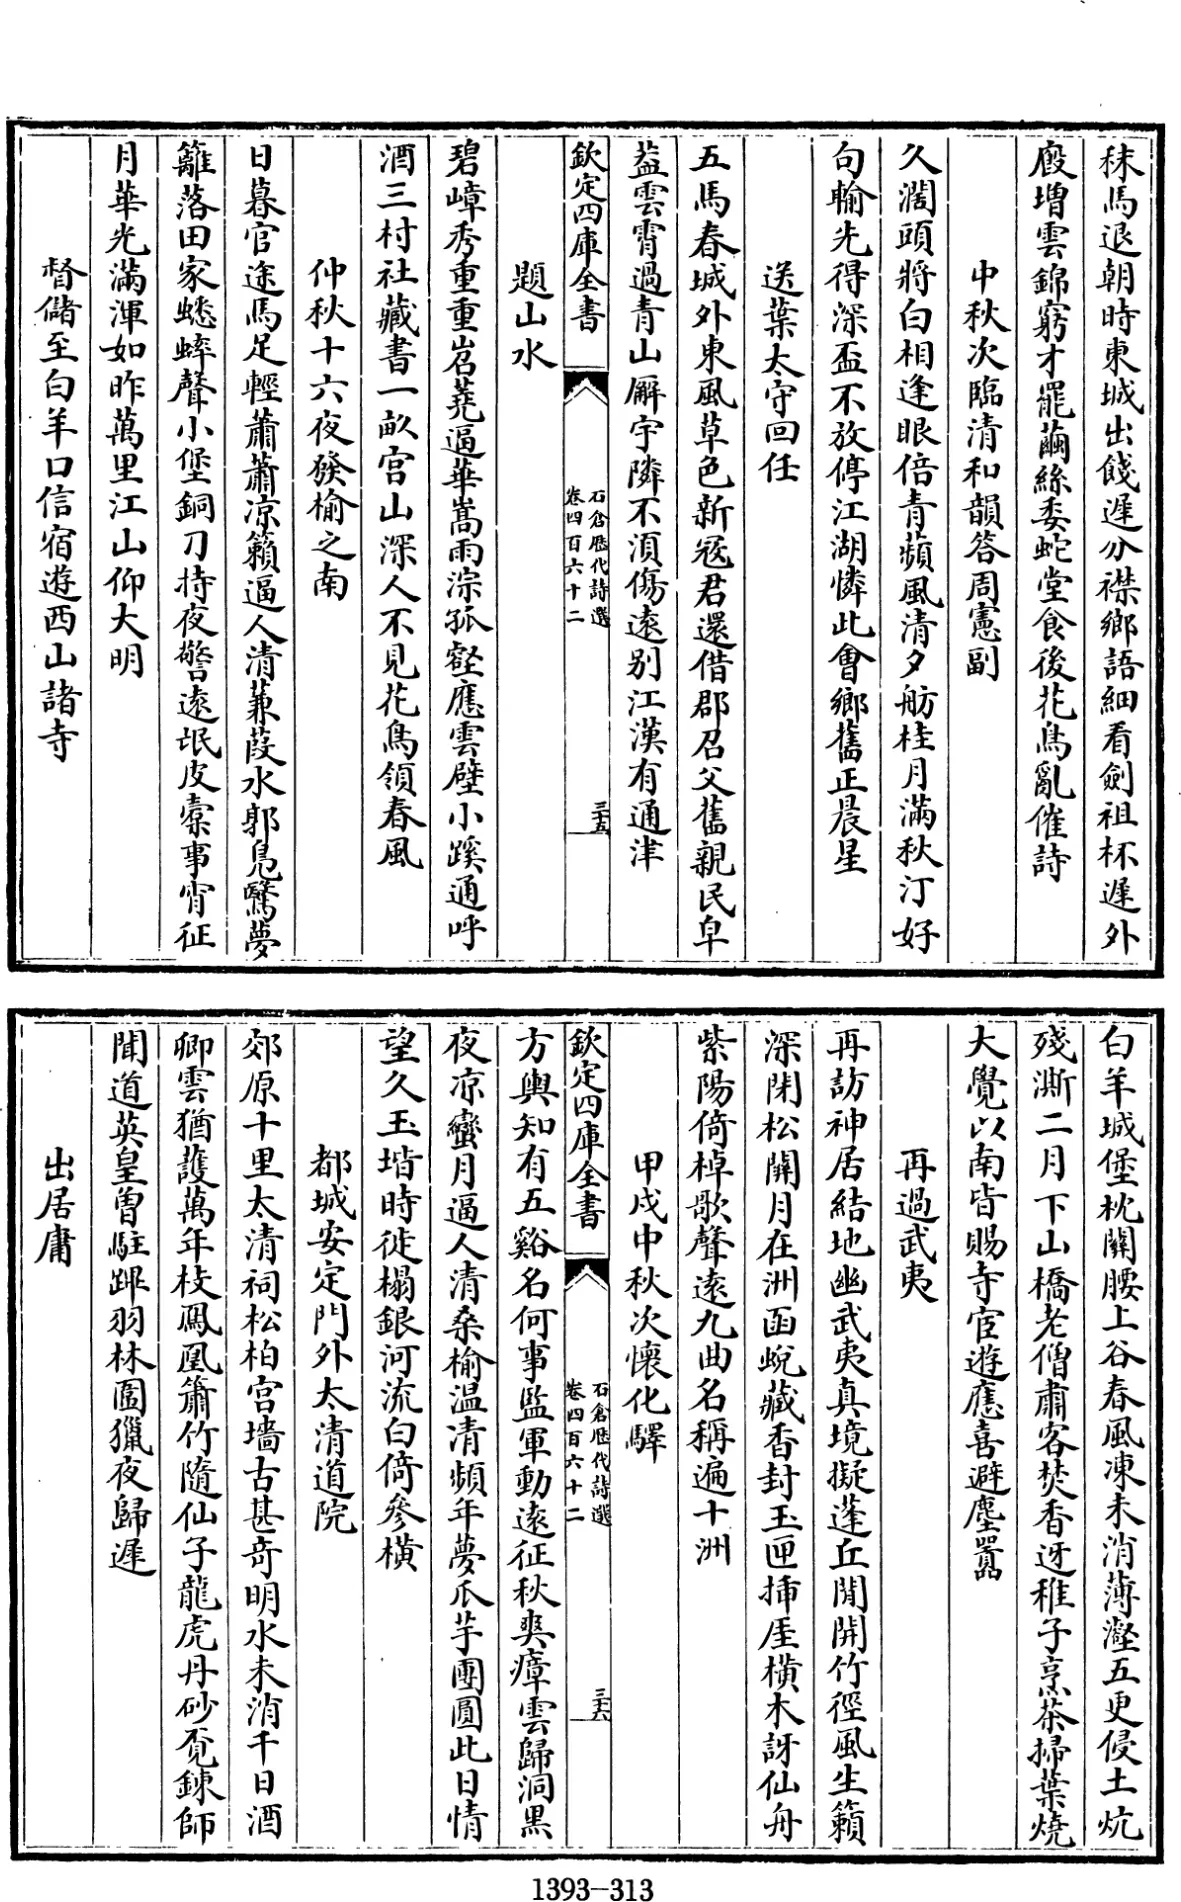 秣馬退朝時東城出餞遲分襟鄉語細看劍祖杯遲外
廏増雲錦窮才罷繭絲委蛇堂食後花鳥亂催詩
中秋次臨清和韻答周憲副
久濶頭將白相逢眼倍青蘋風清夕舫桂月滿秋汀好
句輸先得深盃不放停江湖憐此會鄉舊正晨星
送葉太守回任
五馬春城外東風草色新冦君還借郡召父舊親民皁
葢雲霄過青山廨宇隣不湏傷逺别江漢有通津
欽定四庫全書
石倉歴代詩選
卷四百六十二
三五
題山水
碧嶂秀重重岧蕘逼華嵩雨淙孤壑應雲磴小蹊通呼
酒三村社藏書一畝宫山深人不見花鳥領春風
仲秋十六夜發榆之南
日暮官途馬足輕蕭蕭凉籟逼人清蒹葭水郭鳬驚夢
籬落田家蟋蟀聲小堡銅刀持夜警逺氓皮槖事宵征
月華光滿渾如昨萬里江山仰大明
督儲至白羊口信宿遊西山諸寺
白羊城堡枕關腰上谷春風凍未消薄瀣五更侵土炕
殘澌二月下山橋老僧肅客焚香迓稚子烹茶掃葉燒
大覺以南皆賜寺宦遊應喜避塵囂
再過武夷
再訪神居結地幽武夷真境擬蓬丘閒開竹徑風生籟
深閉松關月在洲函蛻藏香封玉匣挿厓横木訝仙舟
紫陽倚棹歌聲逺九曲名稱遍十洲
甲戌中秋次懷化驛
欽定四庫全書
石倉歴代詩選
卷四百六十二
三六
方輿知有五谿名何事監軍動逺征秋爽瘴雲歸洞黒
夜凉蠻月逼人清桑榆温凊頻年夢瓜芋團圓此日情
望久玉堦時徙榻銀河流白倚參横
都城安定門外太清道院
郊原十里太清祠松柏宫墻古甚奇明水未消千日酒
卿雲猶護萬年枝鳳凰簫竹隨仙子龍虎丹砂覓鍊師
聞道英皇曽駐蹕羽林圍獵夜歸遲
出居庸
1393-313